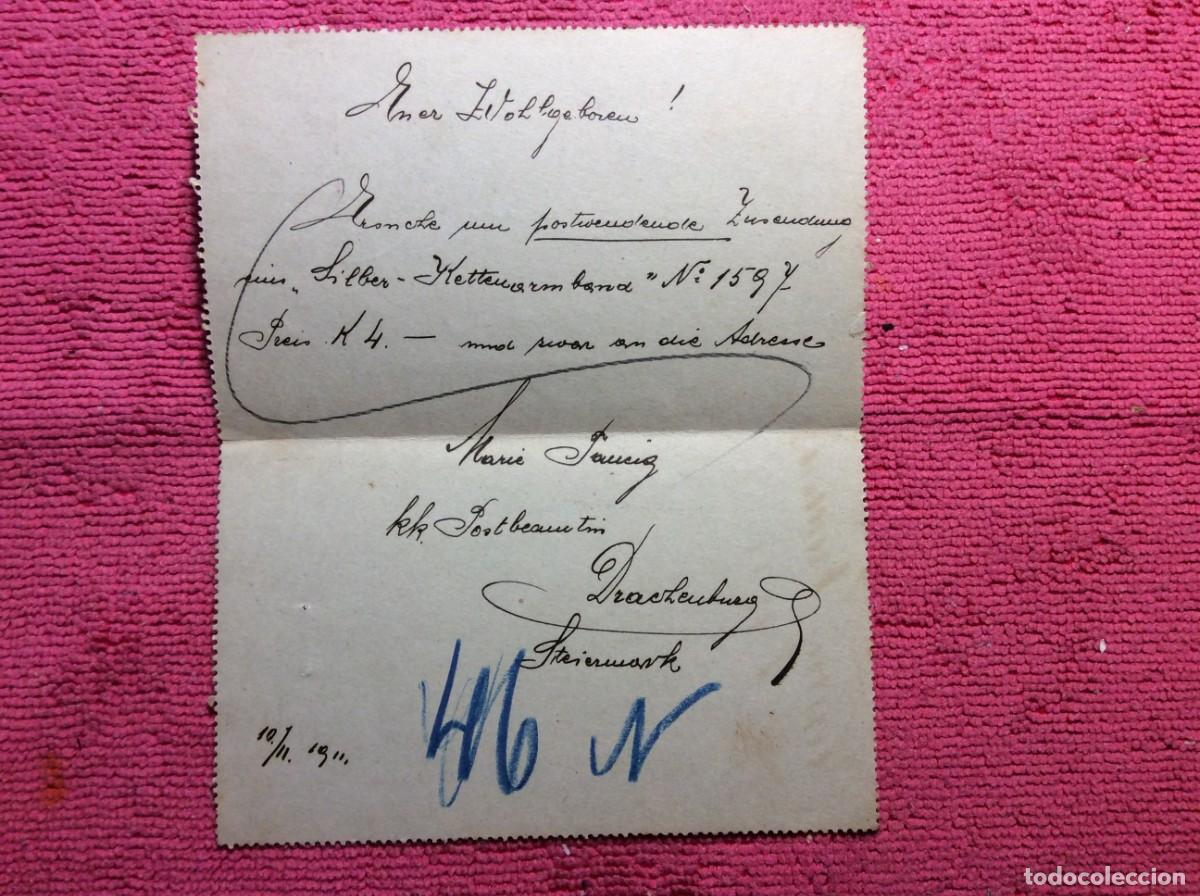 Euer Wohlgeboren!
Ersuche um postwendende Zusendung
eines „Silber-Kettenarmband" No 1597
Preis K 4. — und zwar an die Adresse
Marie
kk. Postbeamtin
Drachenburg
Steiermark
10./II. 1911.
46 N
todocoleccion